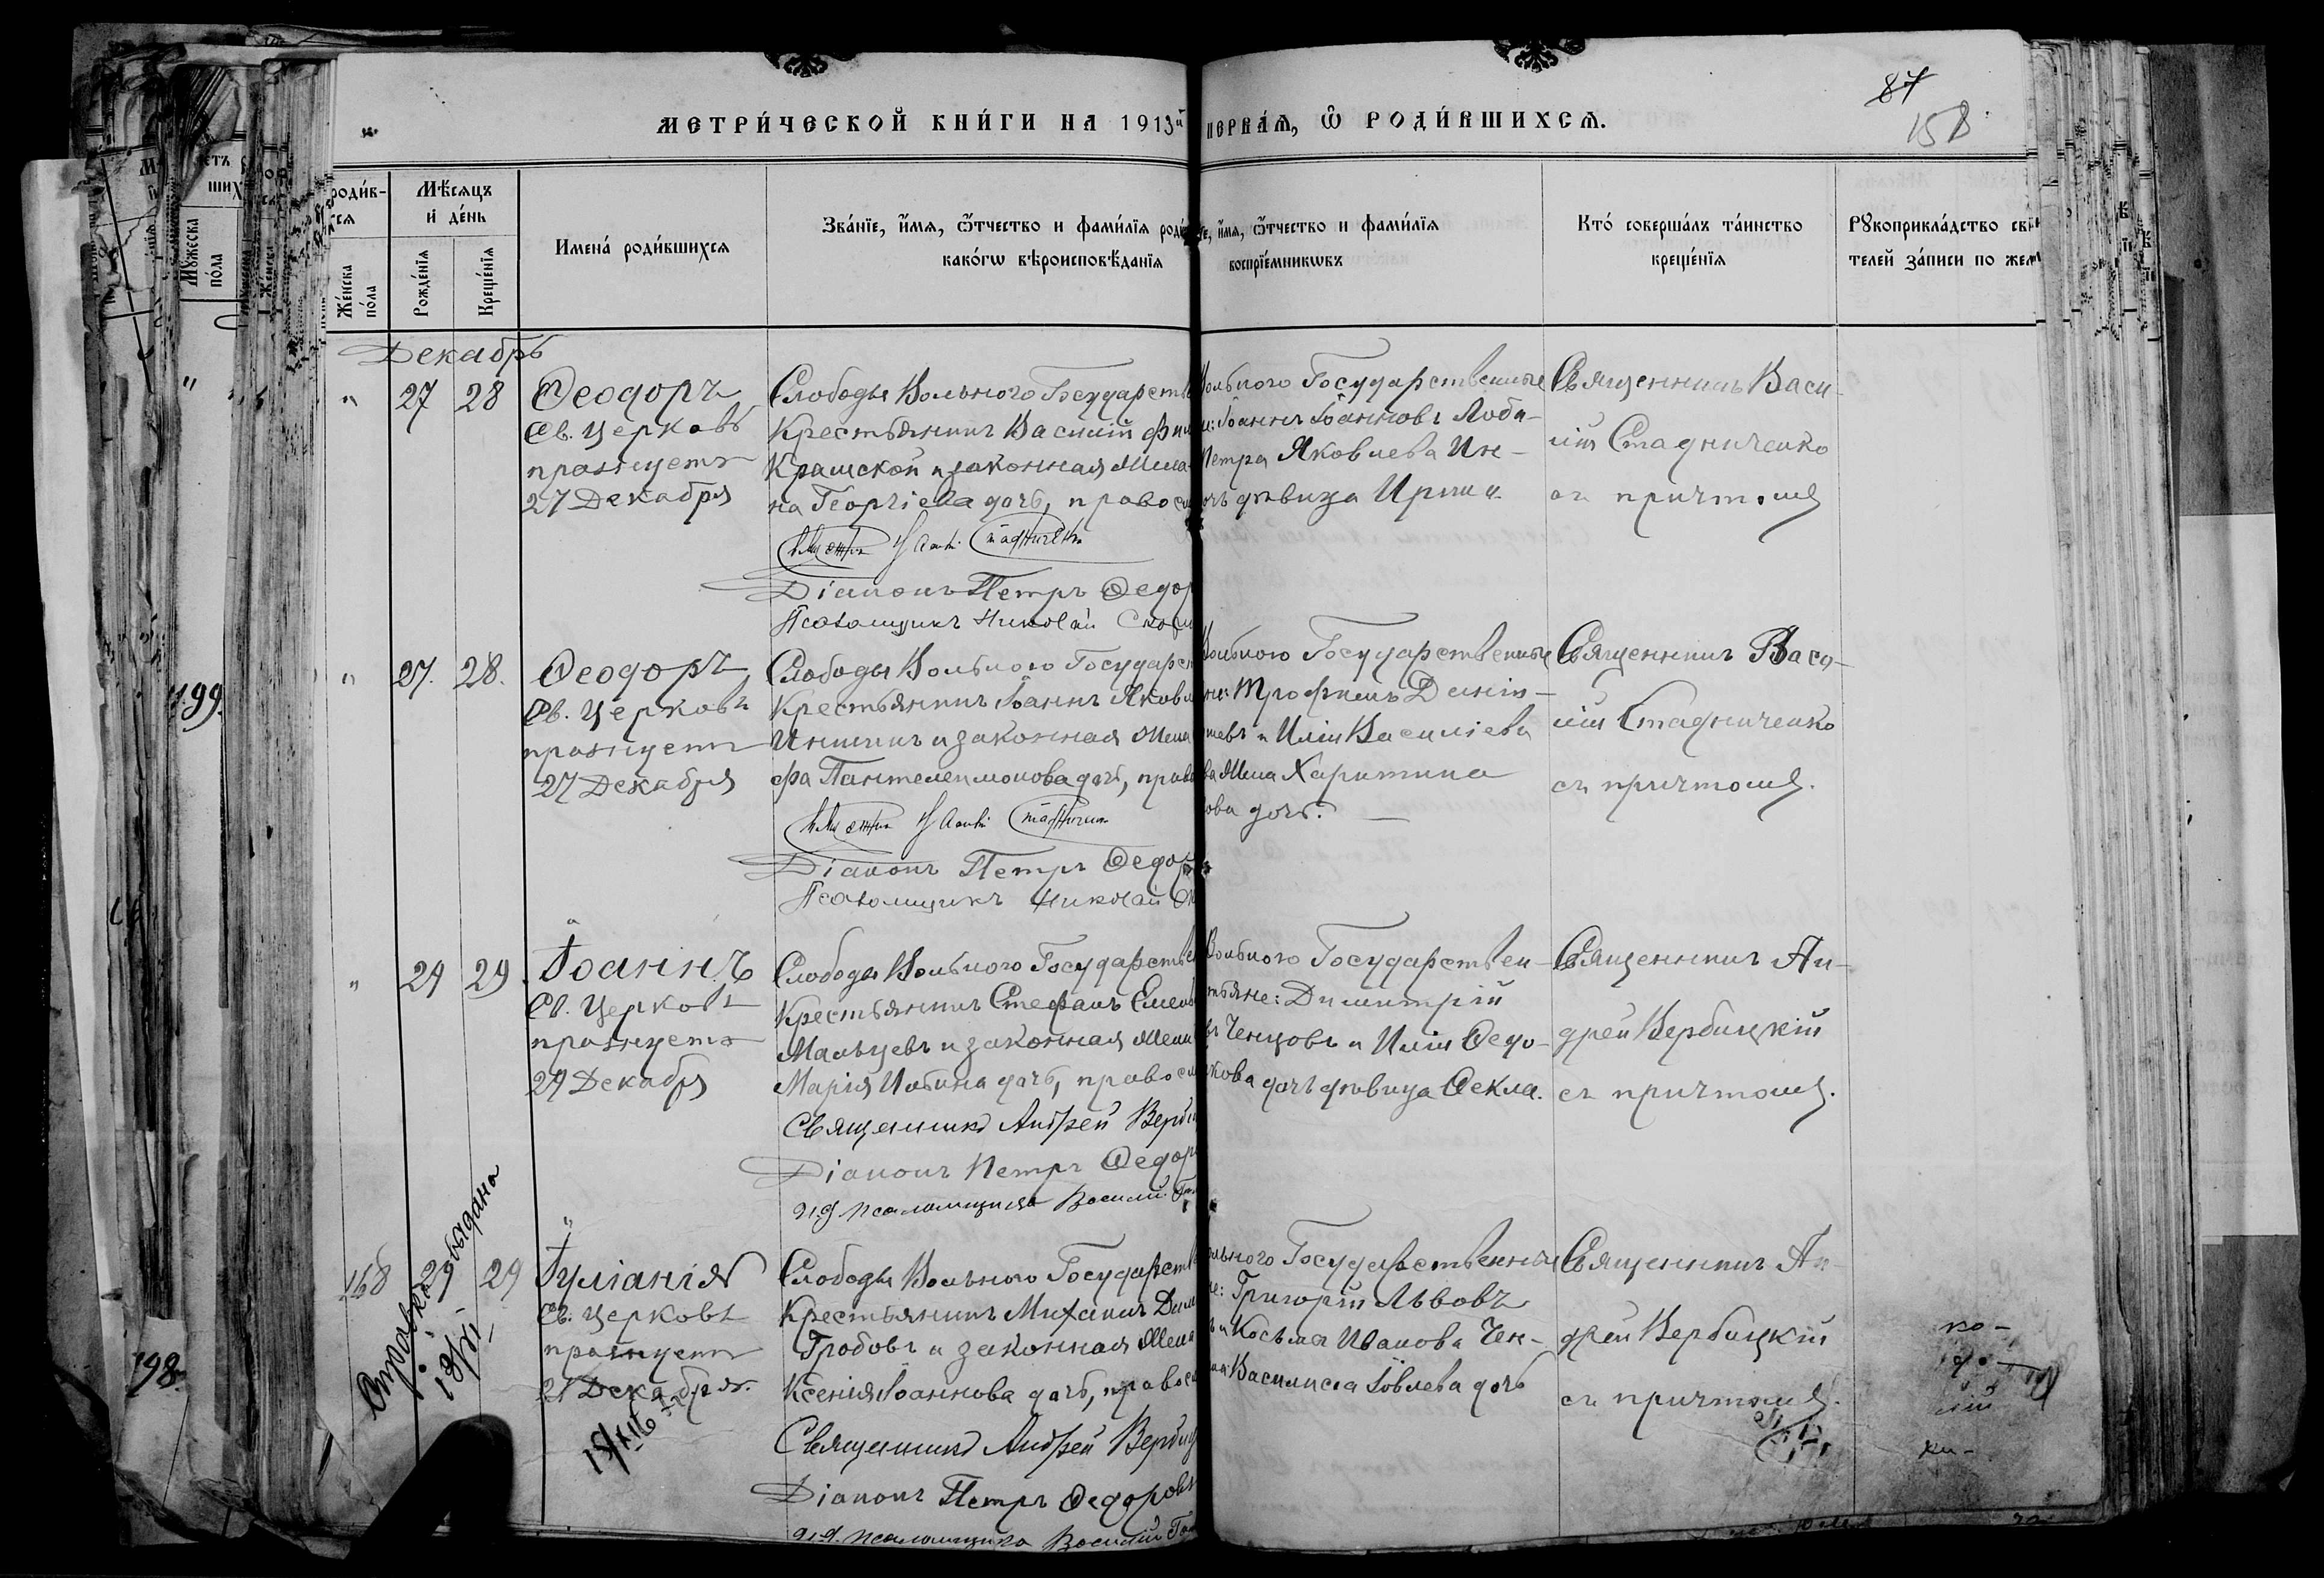 МЕТРИ́ЧЕСКОЙ КНИ́ГИ НА 1913й
ПЕРВА́Я, Ѽ РОДИ́ВШИХСЯ.
87
158
роди́в-
ся
Же́нска
по́ла
Мѣ́сяцъ
и де́нь
Рожде́нїя
Креще́нїя
Имена́ роди́вшихся
Зва́нїе, и́мя, ѻ́тчество и фами́лїя
како́гѡ вѣроисповѣ́данїя
и́мя, ѻ́тчество и фами́лїя
воспрїе́мникѡвъ
Кто́ соверша́лъ та́инство
креще́нїя
Рꙋкоприкла́дство
телей за́писи по
Мꙋжеска
по́ла
Декабрь
" 27 28
Ѳеодоръ
Св. Церковь
празнуетъ
27 Декабря
Слободы Вольного Государств
Крестьянинъ Василій Фил
Крамской и законная жена
на Георгіева дочь, правосл
Діаконъ Петръ Ѳедор
Псаломщикъ Николай
Вольного Государственные
Іоаннъ Іоанновъ Лоба-
Петра Яковлева Ин-
дѣвица Ирина
Священникъ Васи-
лій Стадниченко
съ причтомъ
199.
" 27. 28.
Ѳеодоръ
Св. Церковь
празнуетъ
27 Декабря
Слободы Вольного Государст
Крестьянинъ Іоаннъ Яковл
Иншинъ и законная жена
фа Пантелеимонова дочь, право
Діаконъ Петръ Ѳедор
Псаломщикъ Николай
Вольного Государственные
Трофимъ
и Илія Василіева
жена Харитина
ова дочь.
Священникъ Васи-
лій Стадниченко
съ причтомъ.
" 29 29
Іоаннъ
Св. Церковь
празнуетъ
29 Декабря
Слободы Вольного Государствен
Крестьянинъ Стефанъ Емель
Мальцевъ и законная жена
Марія дочь, правосл
Священникъ Андрей Верби
Діаконъ Петръ Ѳедор
И.д. псаломщика Василій
Вольного Государствен-
тьяне: Димитрій
Ченцовъ и Илія Ѳедо-
кова дочь дѣвица Ѳекла.
Священникъ Ан-
дрей Вербицкій
съ причтомъ.
168 29 29
198.
Справка выдана
Іуліанія
Св. Церковь
празнуетъ
21 Декабря.
Слободы Вольного Государств
Крестьянинъ Михаилъ Дим
Гробовъ и законная жена
Ксенія Іоаннова дочь, правосл
Священникъ Андрей Вербиц
Діаконъ Петръ Ѳедоровъ
И.д. псаломщика Василій
ольного Государственные
Григорій Львовъ
и Косьма Иванова Чен-
Василиса Іовлева дочь
Священникъ Ан-
дрей Вербицкій
съ причтомъ.